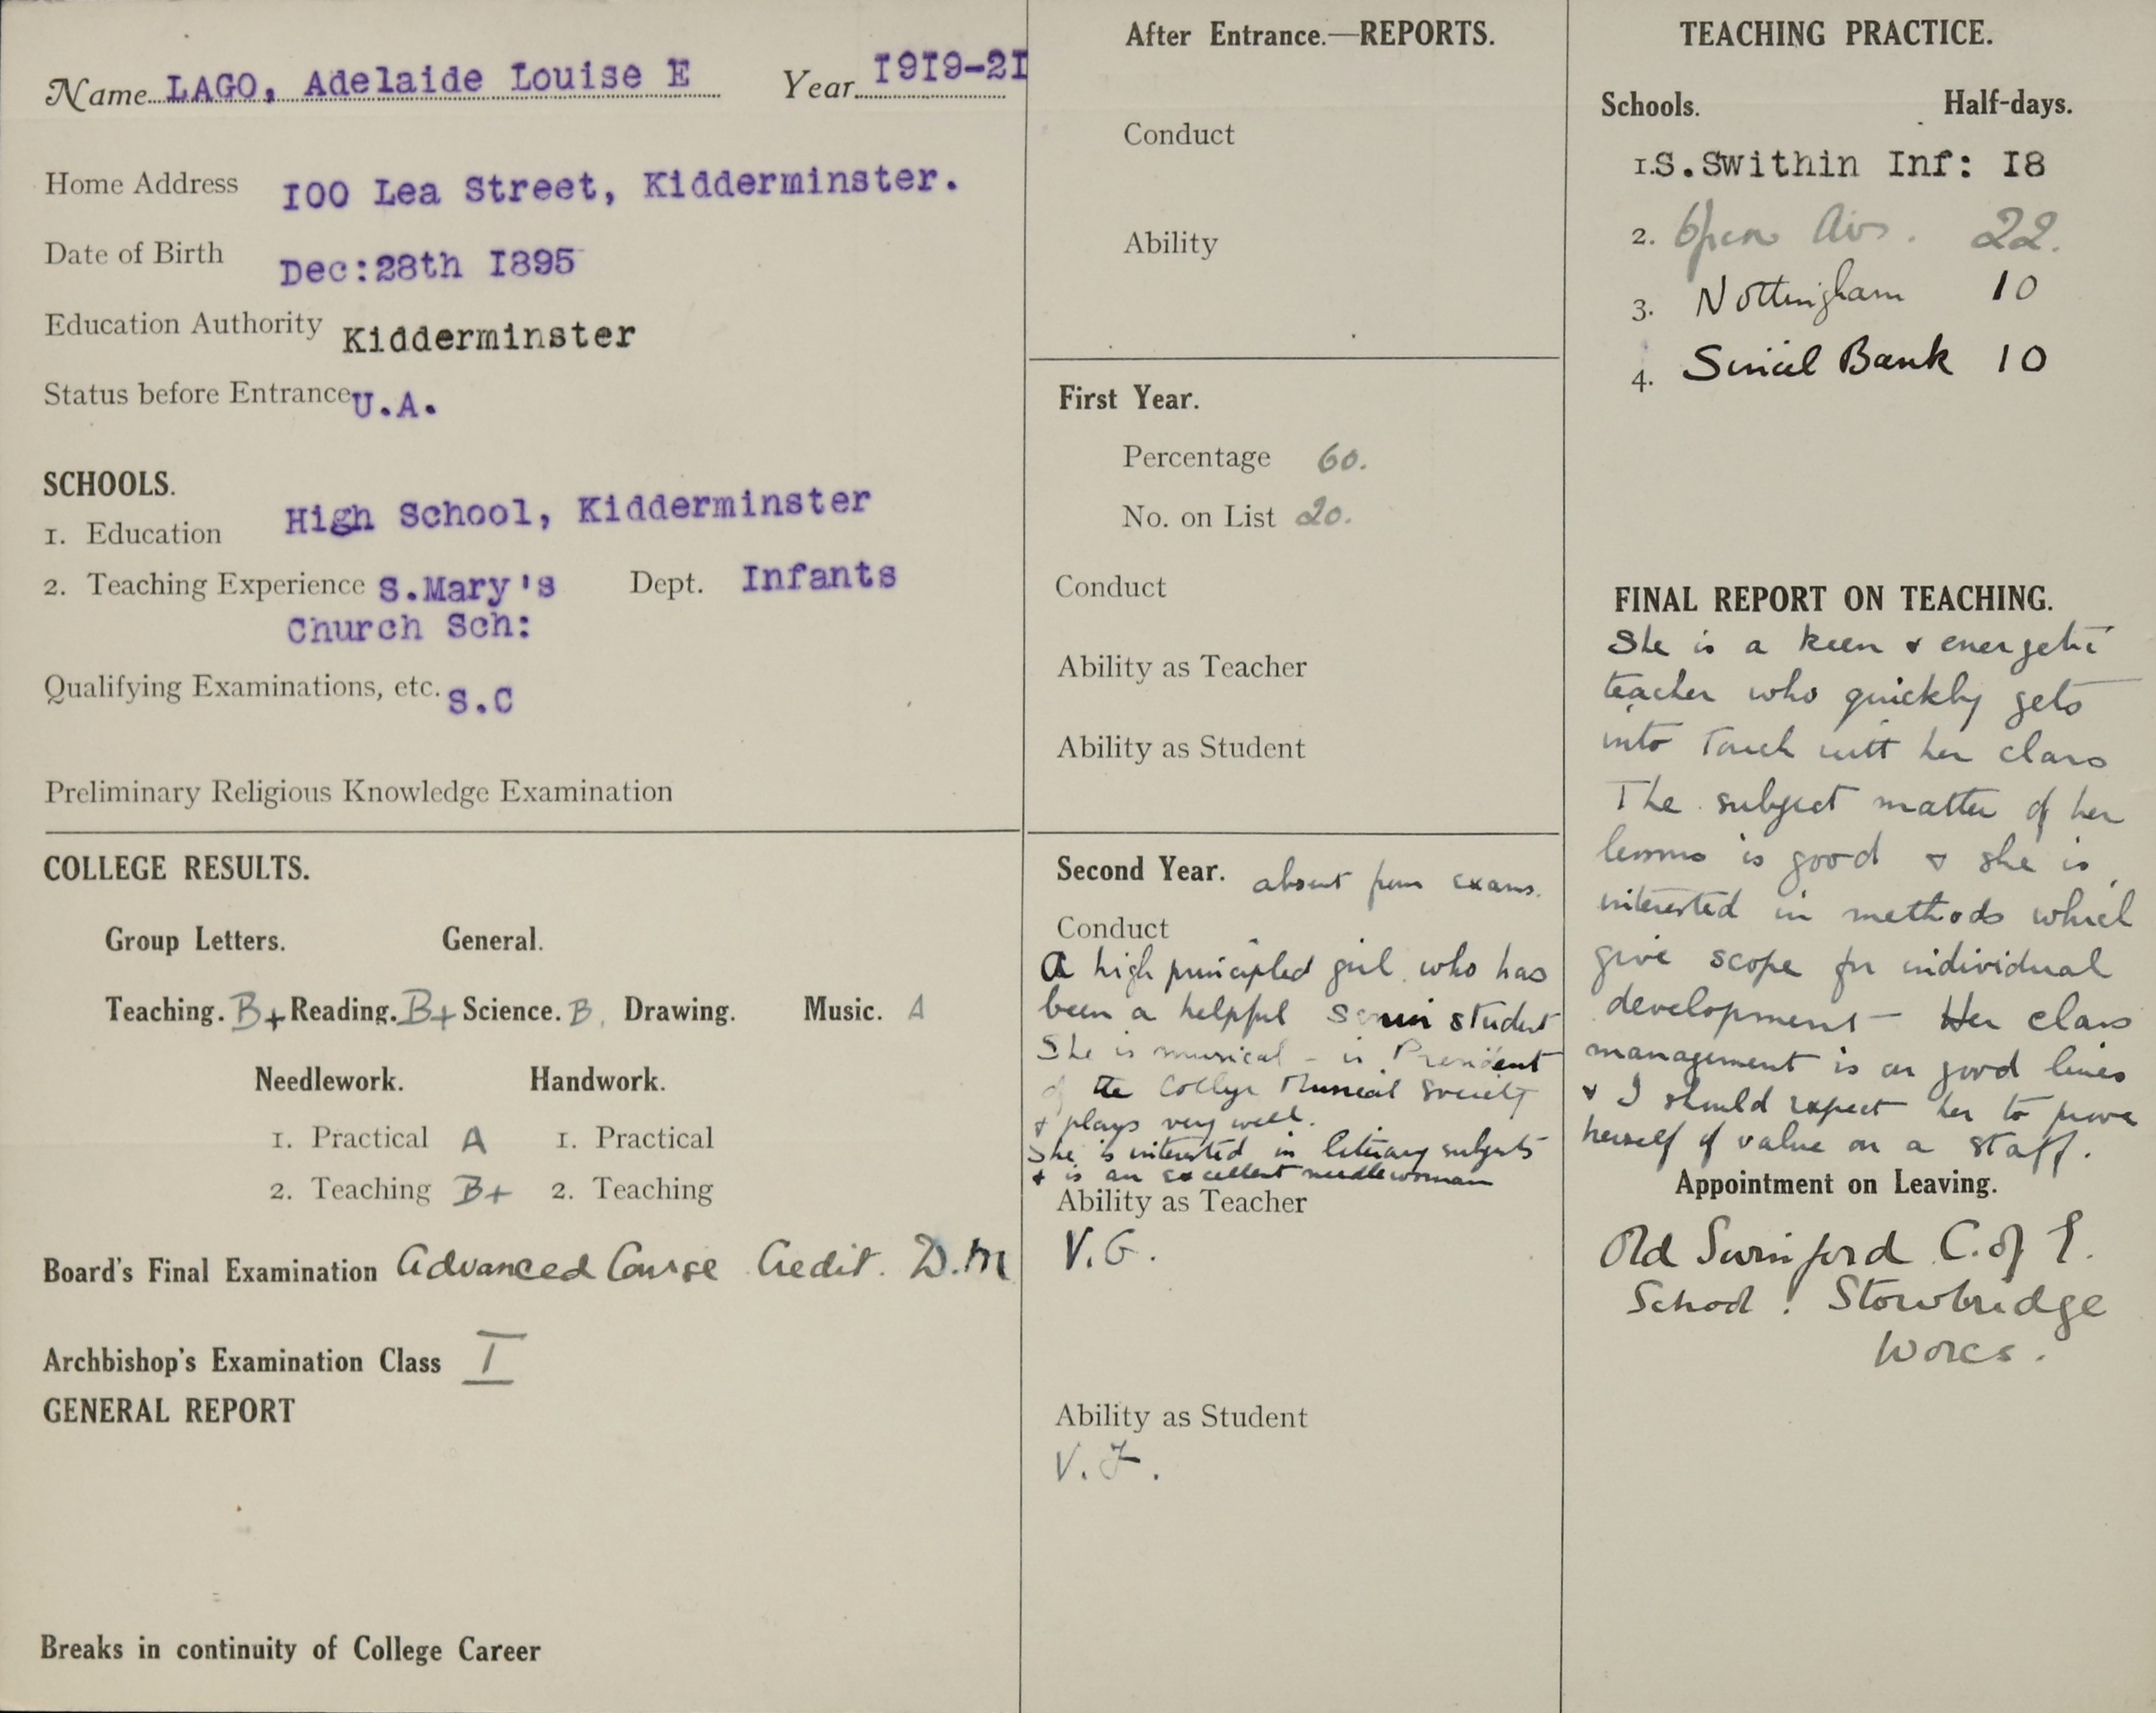 Name LAGO, Adelaide Louise E Year 1919-21
Home Address 100 Lea Street, Kidderminster.
Date of Birth Dec:28th 1895
Education Authority Kidderminster
Status before Entrance U.A.
SCHOOLS.
1. Education High School, Kidderminster
2. Teaching Experience S.Mary's Dept. Infants
Church Sch:
Qualifying Examinations, etc. S.C
Preliminary Religious Knowledge Examination
COLLEGE RESULTS.
Group Letters. General.
Teaching. B+ Reading. B+ Science. B. Drawing. Music. A
Needlework. Handwork.
1. Practical A 1. Practical
2. Teaching B+ 2. Teaching
Board's Final Examination Advanced Course Credit. D.M
Archbishop's Examination Class I
GENERAL REPORT
Breaks in continuity of College Career
After Entrance.—REPORTS.
Conduct
Ability
First Year.
Percentage 60.
No. on List 20.
Conduct
Ability as Teacher
Ability as Student
Second Year. absent from exams.
Conduct
A high principled girl who has
been a helpful Senior student
She is musical - is President
of the College Musical Society
& plays very well.
She is interested in literary subjects
& is an excellent needlewoman
Ability as Teacher
V.G.
Ability as Student
V.F.
TEACHING PRACTICE.
Schools. Half-days.
1. S.Swithin Inf: 18
2. Open Air. 22.
3. Nottingham 10
4. Sincil Bank 10
FINAL REPORT ON TEACHING.
She is a keen & energetic
teacher who quickly gets
into touch with her class
The subject matter of her
lessons is good & she is
interested in methods which
give scope for individual
development - Her class
management is on good lines
& I should expect her to prove
herself of value on a staff.
Appointment on Leaving.
Old Swinford C. of E.
School. Stourbridge
Worcs.